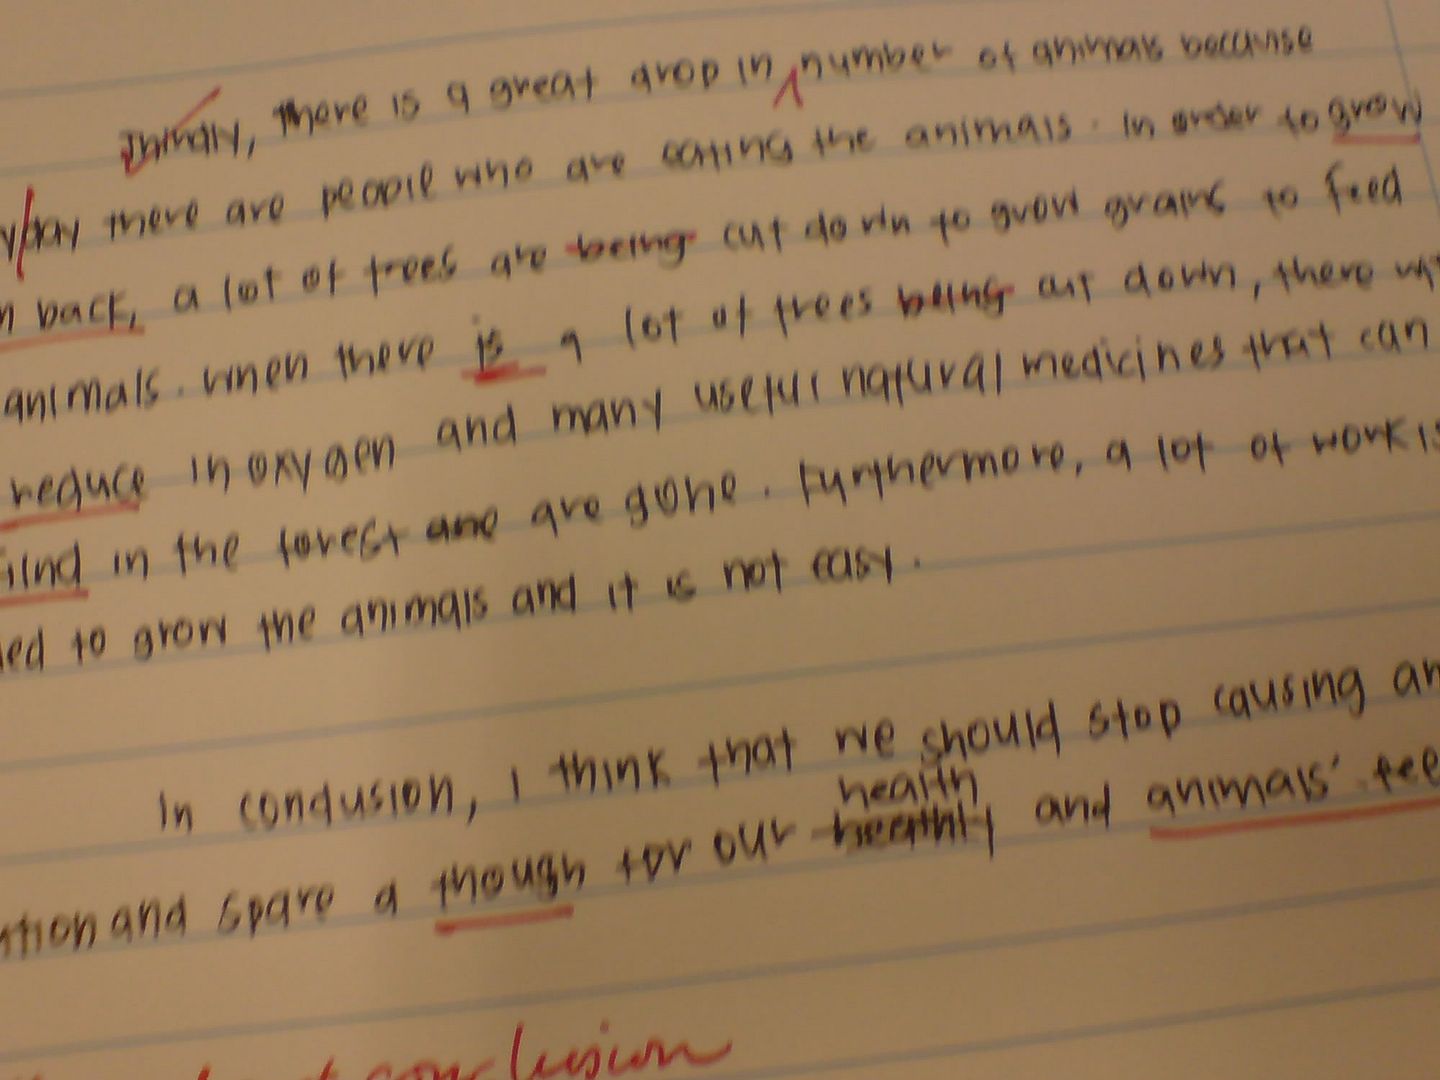 Thirdly, there is a great drop in number of animals because
day there are people who are eating the animals. In order to grow
back, a lot of trees are being cut down to grow grains to feed
animals. When there is a lot of trees being cut down, there
reduce in oxygen and many useful natural medicines that can
find in the forest are are gone. Furthermore, a lot of work is
to grow the animals and it is not easy.
In conclusion, I think that we should stop causing
health
and spare a though for our healthly and animals'
conclusion